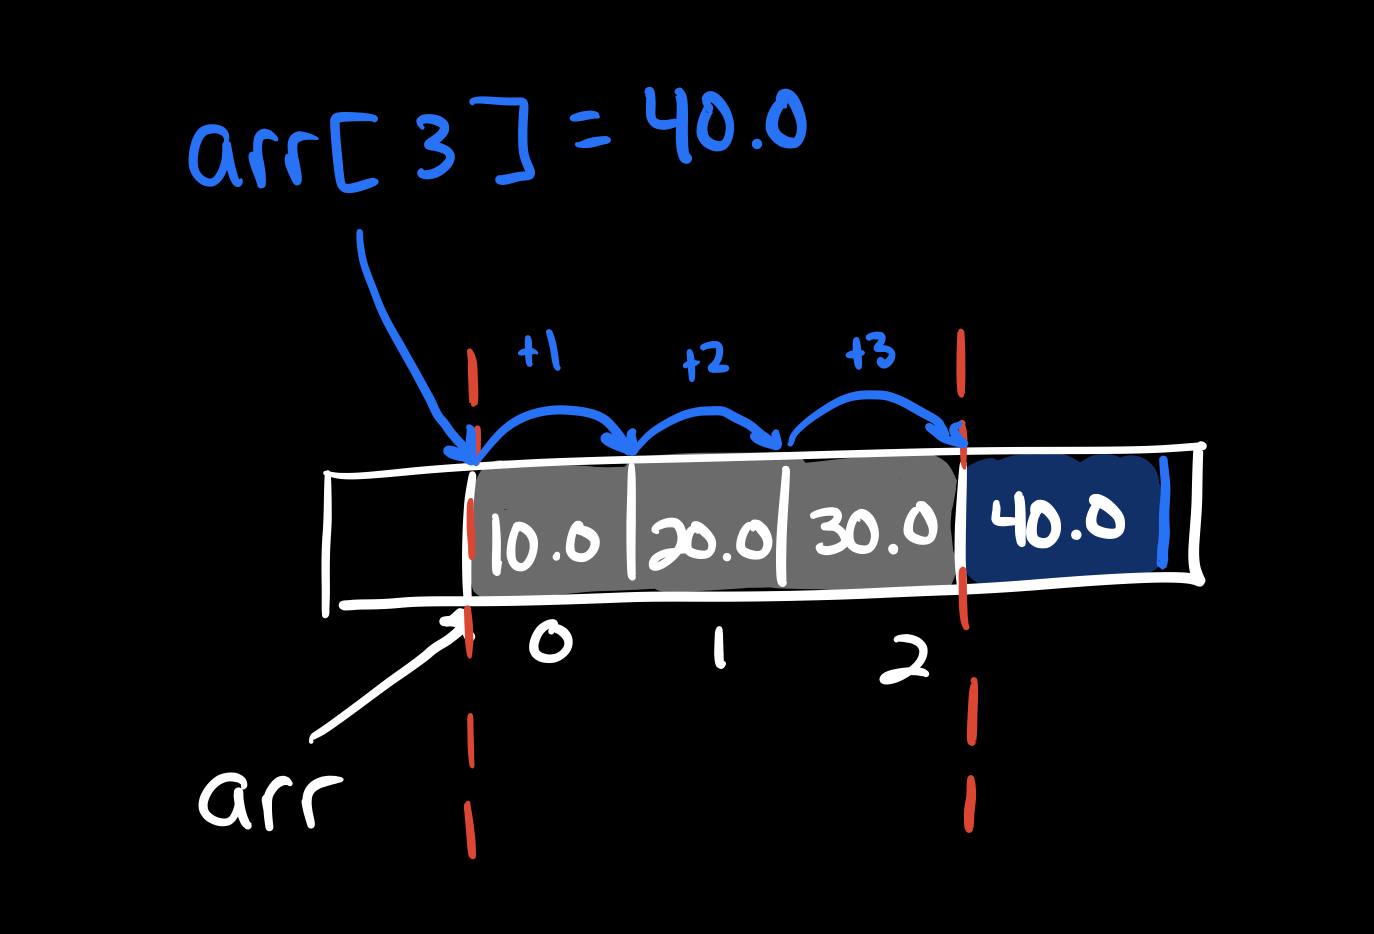 arr[3] = 40.0
+1 +2 +3
10.0 20.0 30.0 40.0
0 1 2
arr